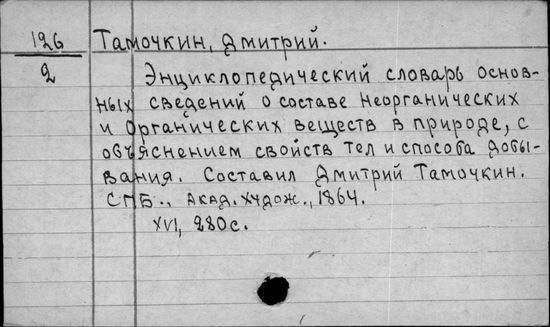 126
2
Тамочкин, Дмитрий.
Энциклопедический словарь основ-
ных сведений о составе неорганических
и органических веществ в природе, с
объяснением свойств тел и способа добы-
вания. Составил Дмитрий Тамочкин.
СПБ., Акад. худож., 1864.
XVI, 280 с.